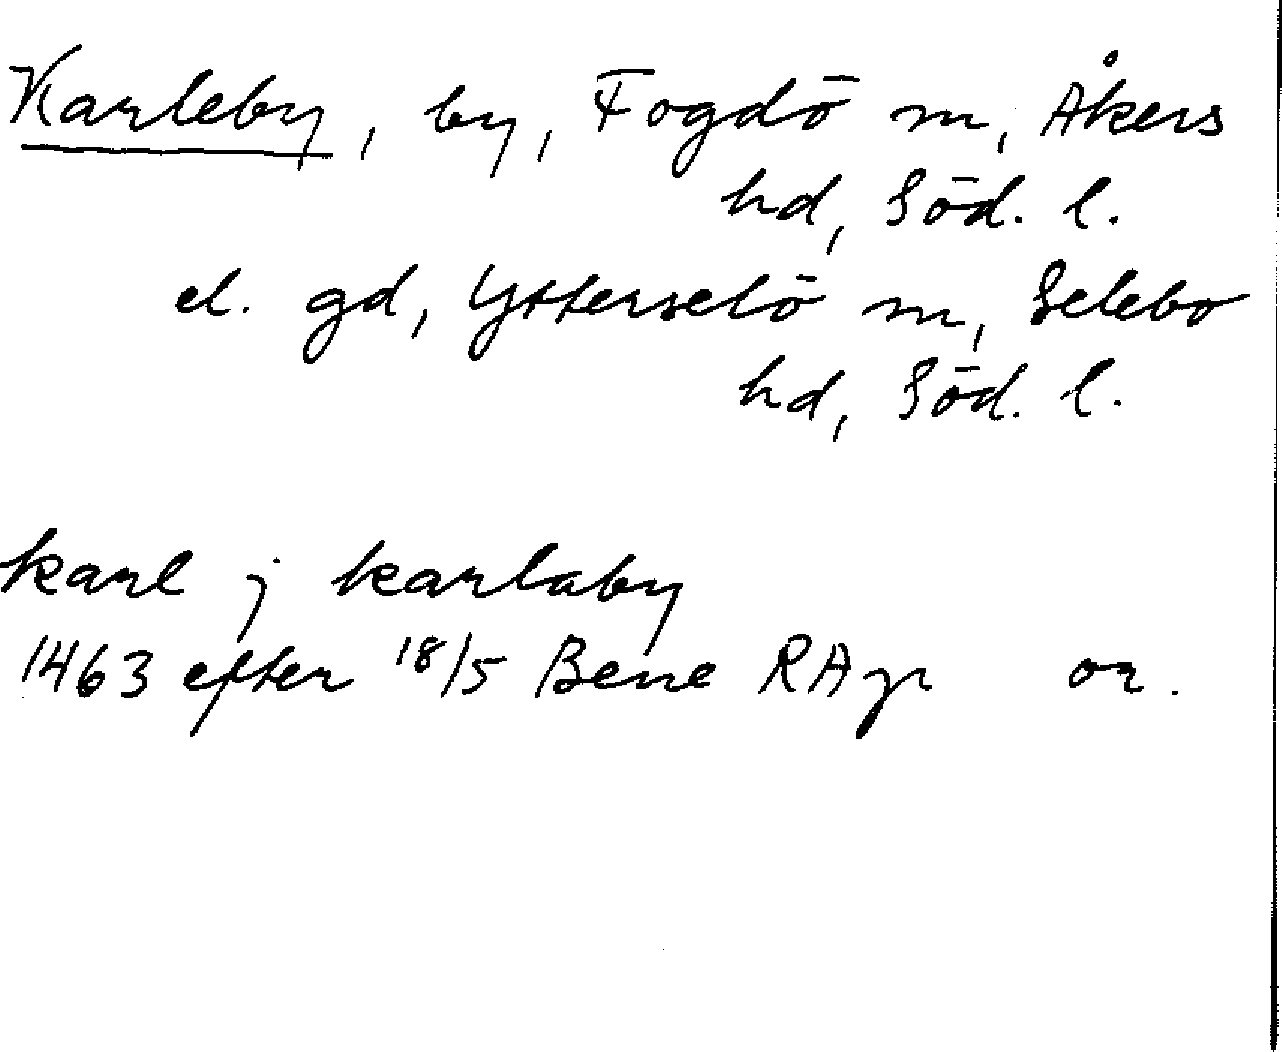 Karleby, by, Fogdö sn, Åkers
hd, Söd. l.
el. gd, Ytterselö sn, Selebo
hd, Söd. l.
karl j karlaby
1463 efter 18/5 Bene RAp or.